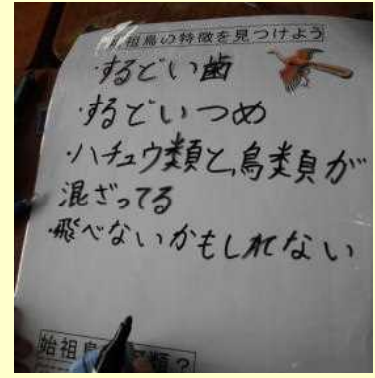 始祖鳥の特徴を見つけよう
・するどい歯
・するどいつめ
・ハチュウ類と、鳥類が
混ざってる
・飛べないかもしれない
始祖鳥 類？